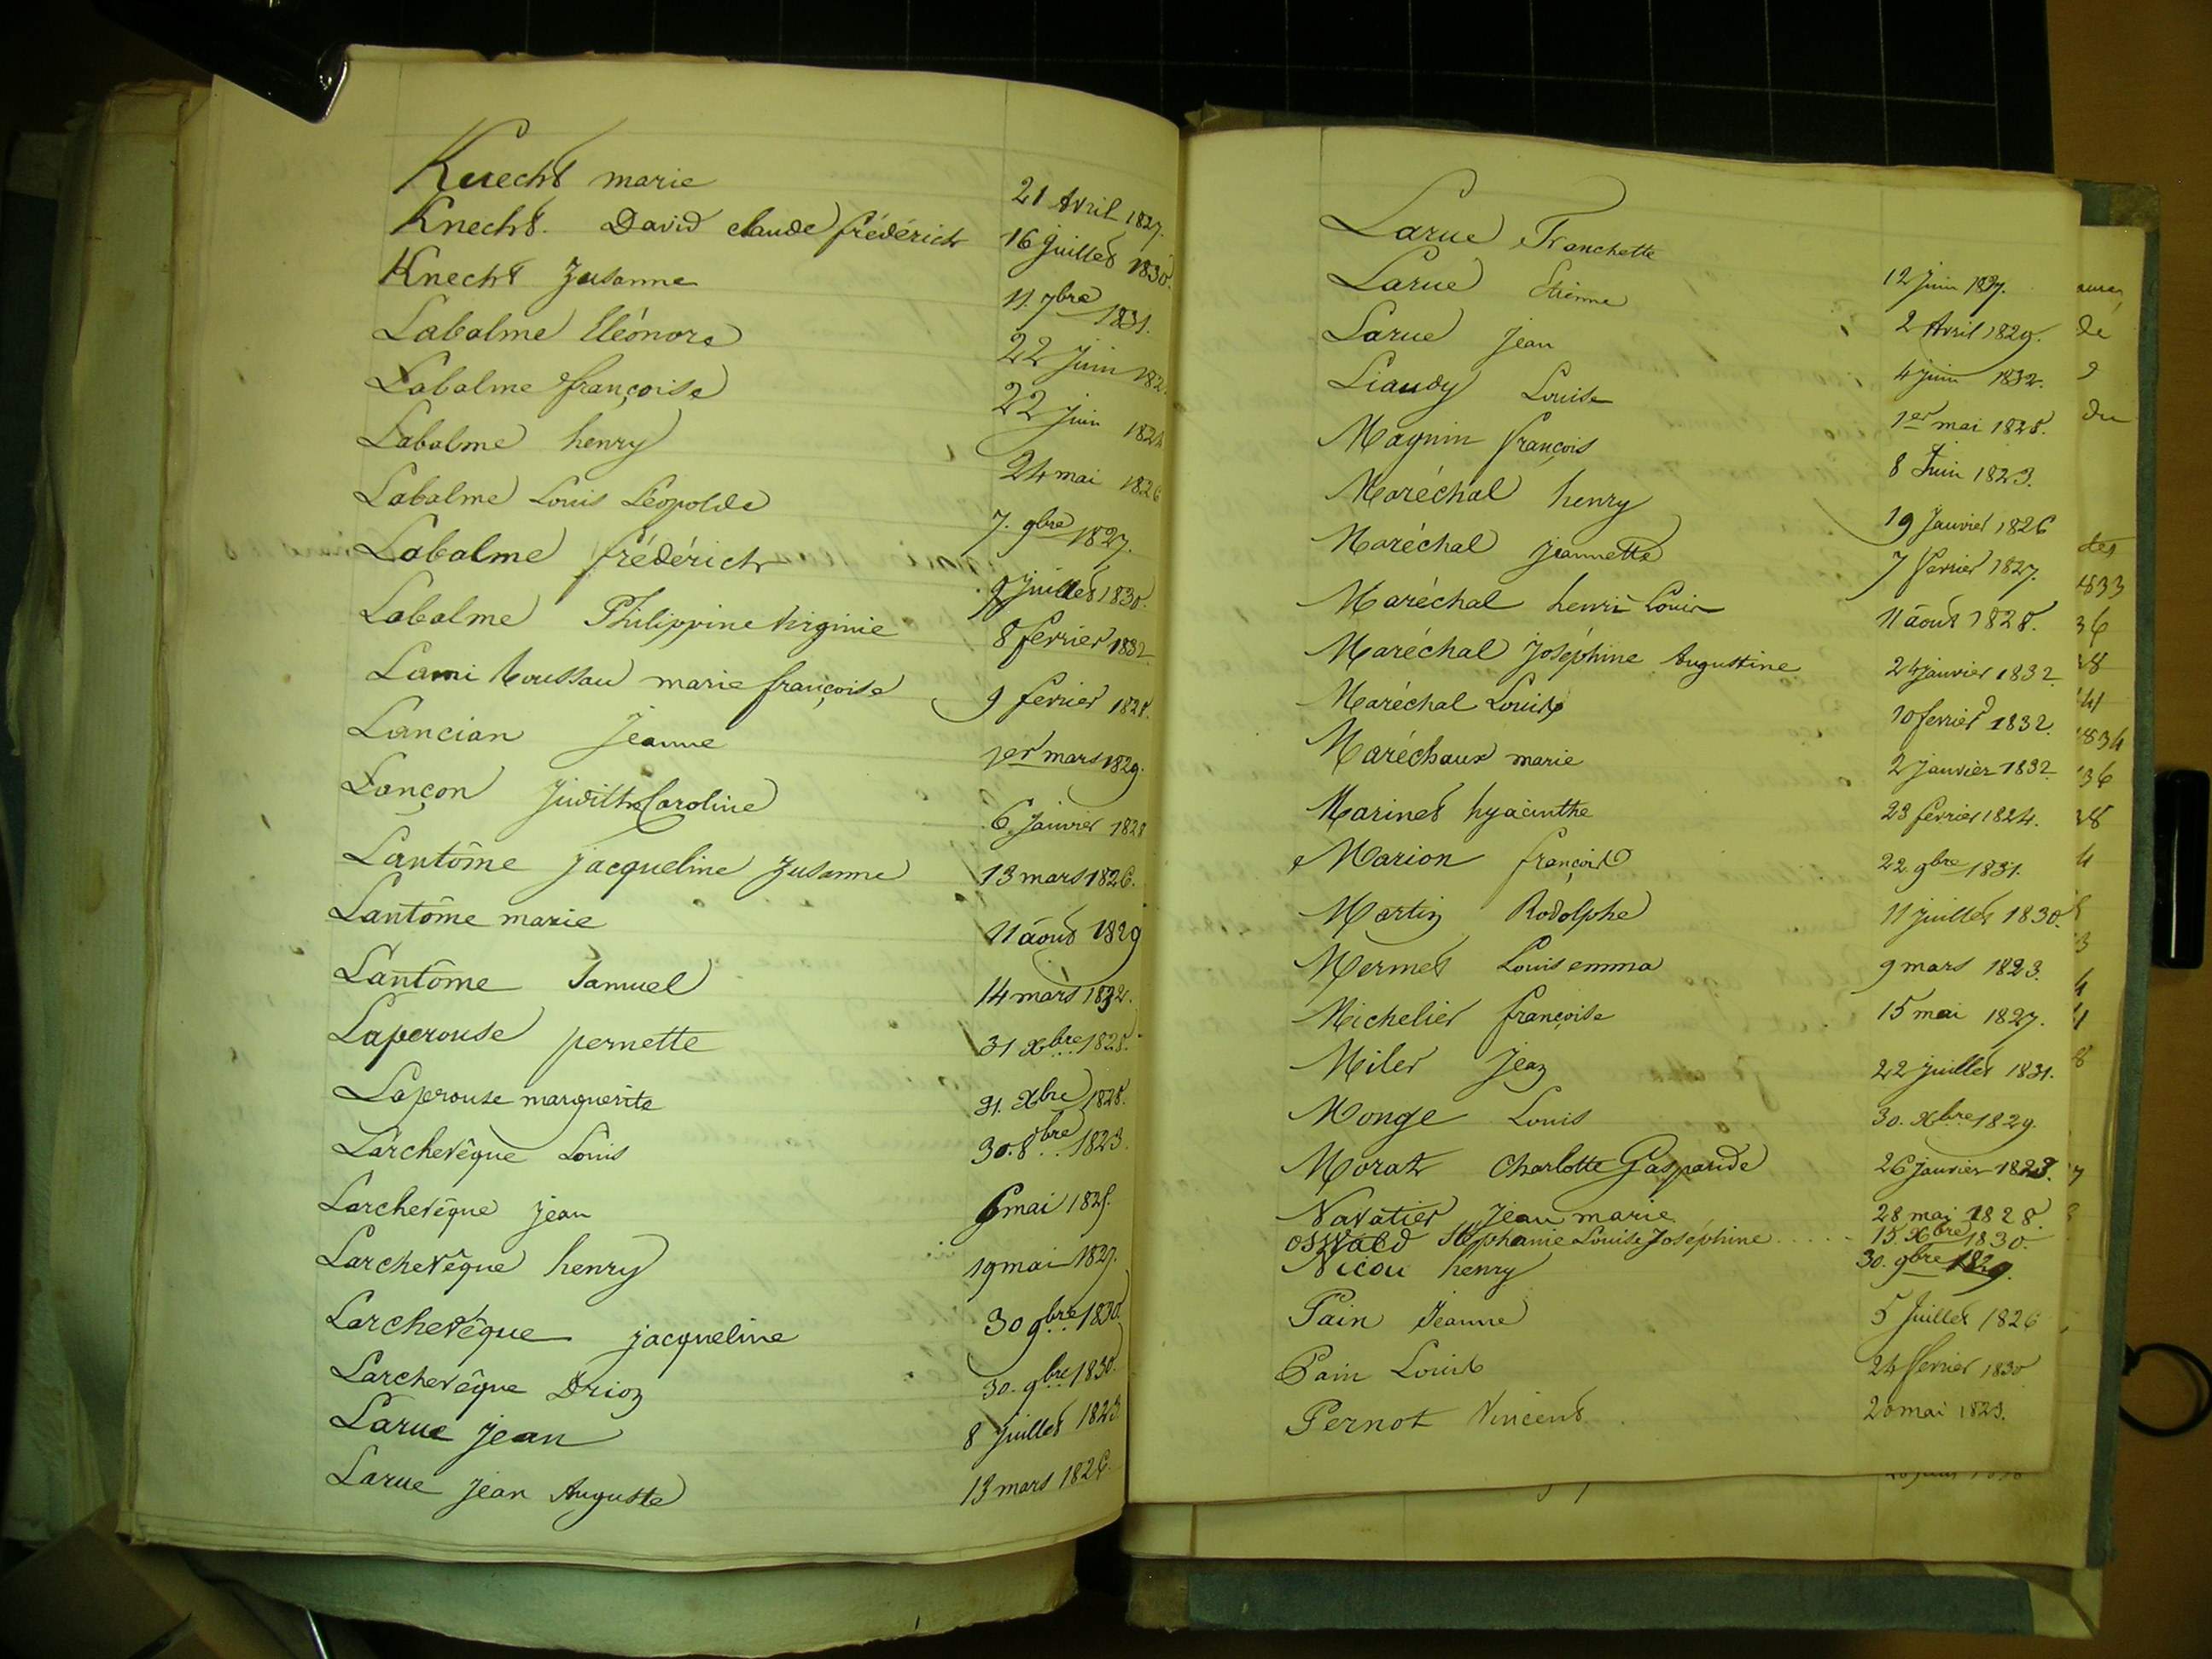 Knecht marie 21 Avril 1827.
Knecht. David claude frédérich 16 juillet 1830.
Knecht Susanne 11. 7bre 1831.
Labalme Eléonore 22 Juin 182
Labalme françoise 22 juin 1824
Labalme henry 24 mai 1826
Labalme Louis Léopolde 7. 9bre 1827.
Labalme frédérich 9 juillet 1830.
Labalme Philippine Virginie 8 fevrier 1832.
Lami marie françoise 9 fevrier 1828.
Lancian Jeanne 1er mars 1829.
Lançon Judith Caroline 6 Janvier 1828
Lantôme jacqueline Susanne 13 mars 1826.
Lantôme marie 11 août 1829
Lantôme Samuel 14 mars 1832.
Laperouse pernette 31 Xbre 1828.
Laperouse marguerite 31. Xbre 1828.
Larchevêque Louis 30. 8bre 1823
Larchevêque jean 6 mai 1825.
Larchevêque henry 19 mai 1827.
Larchevêque jacqueline 30 9bre 1830.
Larchevêque Drion 30. 9bre 1830.
Larue jean 8 juillet 1823
Larue jean Auguste 13 mars 1826.
Larue Franchette 12 juin 1827.
Larue Etienne 2 Avril 1829.
Larue jean 4 juin 1832.
Liaudy Louise 1er mai 1828.
Magnin françois 8 Juin 1823.
Maréchal henry 19 Janvier 1826
Maréchal jeannette 7 fevrier 1827.
Maréchal henri Louis 11 août 1828.
Maréchal joséphine Augustine 24 janvier 1832.
Maréchal Louise 10 fevrier 1832.
Maréchaux marie 2 janvier 1832.
Marinet hyacinthe 23 fevrier 1824.
Marion françoise 22. 9bre 1831.
Martin Rodolphe 11 juillet 1830.
Mermet Louis emma 9 mars 1823.
Michelier françoise 15 mai 1827.
Miler Jean 22 juillet 1831.
Monge Louis 30. Xbre 1829.
Morat Charlotte Gasparide 26 janvier 1823.
Navatier Jean marie 28 mai 1828.
Oswald Stéphanie Louise Joséphine ..... 15. Xbre 1830.
Nicou henry 30. 9bre 1829.
Pain Jeanne 5 Juillet 1826
Pain Louise 24 fevrier 1830
Pernot Vincent 20 mai 1823.
de
du
des
1833
36
38
41
1834
36
38
4